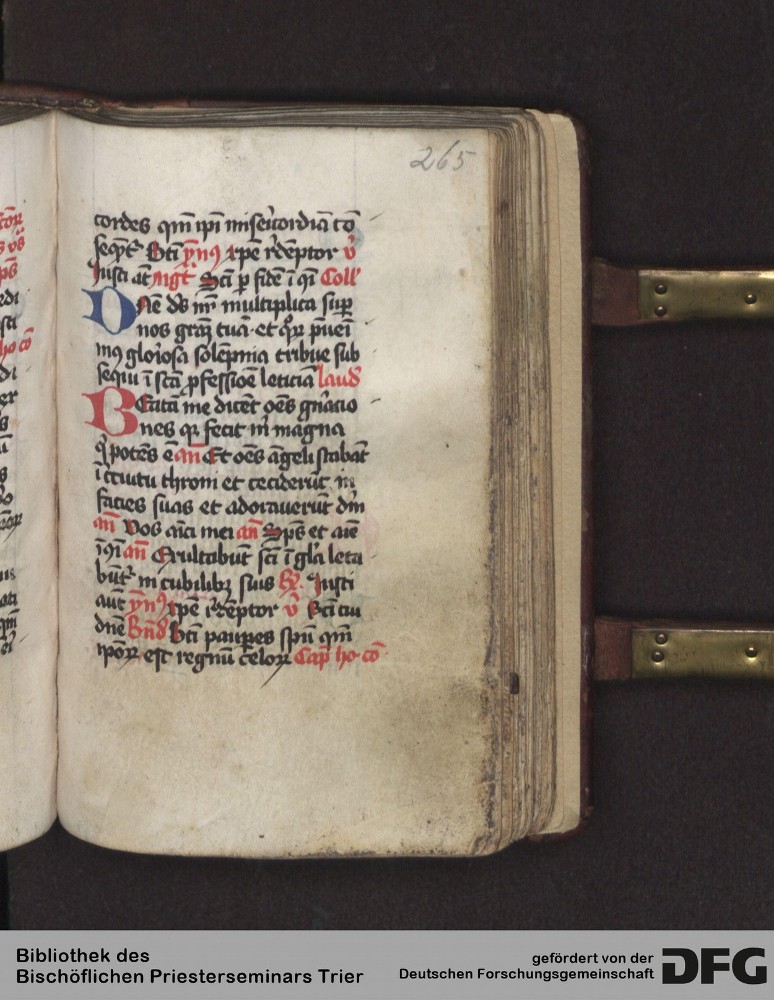 265
cordes qm̄ ip̄i mīsericordiā cō
seqr̄ Bt̄i ȳnꝰ xp̄e r̄dēptor v̄
Iusti āt m̄gt̄ Scī ꝑ fidē ī q̄i Coll'
Dn̄e ds̄ nr̄ multiplica sup̄
nos grām tuā et qꝝ p̄uēi
mꝰ gloriosa solēpnia tribue sub
sequi ī scā ꝓfessiōe leticiā laud̄
Beatā me dicēt oēs gn̄acio
nes qꝛ fecit m̄ magna
q̄ potēs ē an̄ Et oēs āgeli stabāt
ī ctuitu throni et ceciderūt in
facies suas et adorauerūt dm̄
an̄ Vos aīci mei an̄ Sp̄s et aīe
īq̄i an̄ Exultabūt scī ī gl̄a leta
būt̄ in cubilibꝫ suis ꝶ Iusti
aūt ȳnꝰ xp̄e r̄dēptor v̄ Scī tui
dn̄e Bn̄d Bt̄i paup̄es spū qm̄
ip̄oꝝ est regnū celoꝝ Cap̄ ho cō
Bibliothek des
Bischöflichen Priesterseminars Trier
gefördert von der
Deutschen Forschungsgemeinschaft DFG